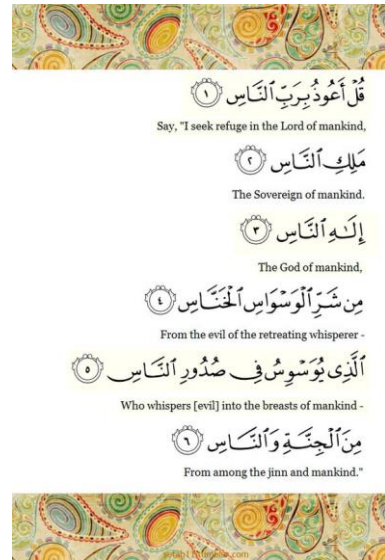 قُلْ أَعُوذُ بِرَبِّ ٱلنَّاسِ ١
Say, "I seek refuge in the Lord of mankind,
مَلِكِ ٱلنَّاسِ ٢
The Sovereign of mankind.
إِلَـٰهِ ٱلنَّاسِ ٣
The God of mankind,
مِن شَرِّ ٱلْوَسْوَاسِ ٱلْخَنَّاسِ ٤
From the evil of the retreating whisperer -
ٱلَّذِى يُوَسْوِسُ فِى صُدُورِ ٱلنَّاسِ ٥
Who whispers [evil] into the breasts of mankind -
مِنَ ٱلْجِنَّةِ وَٱلنَّاسِ ٦
From among the jinn and mankind."